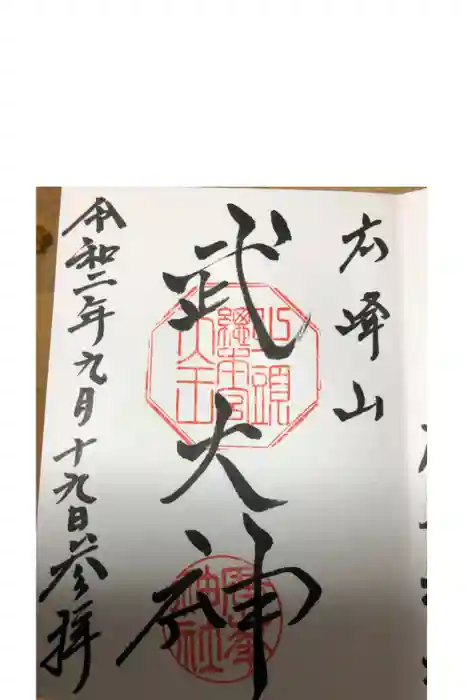 広峰山
武大神
令和二年九月十九日参拝